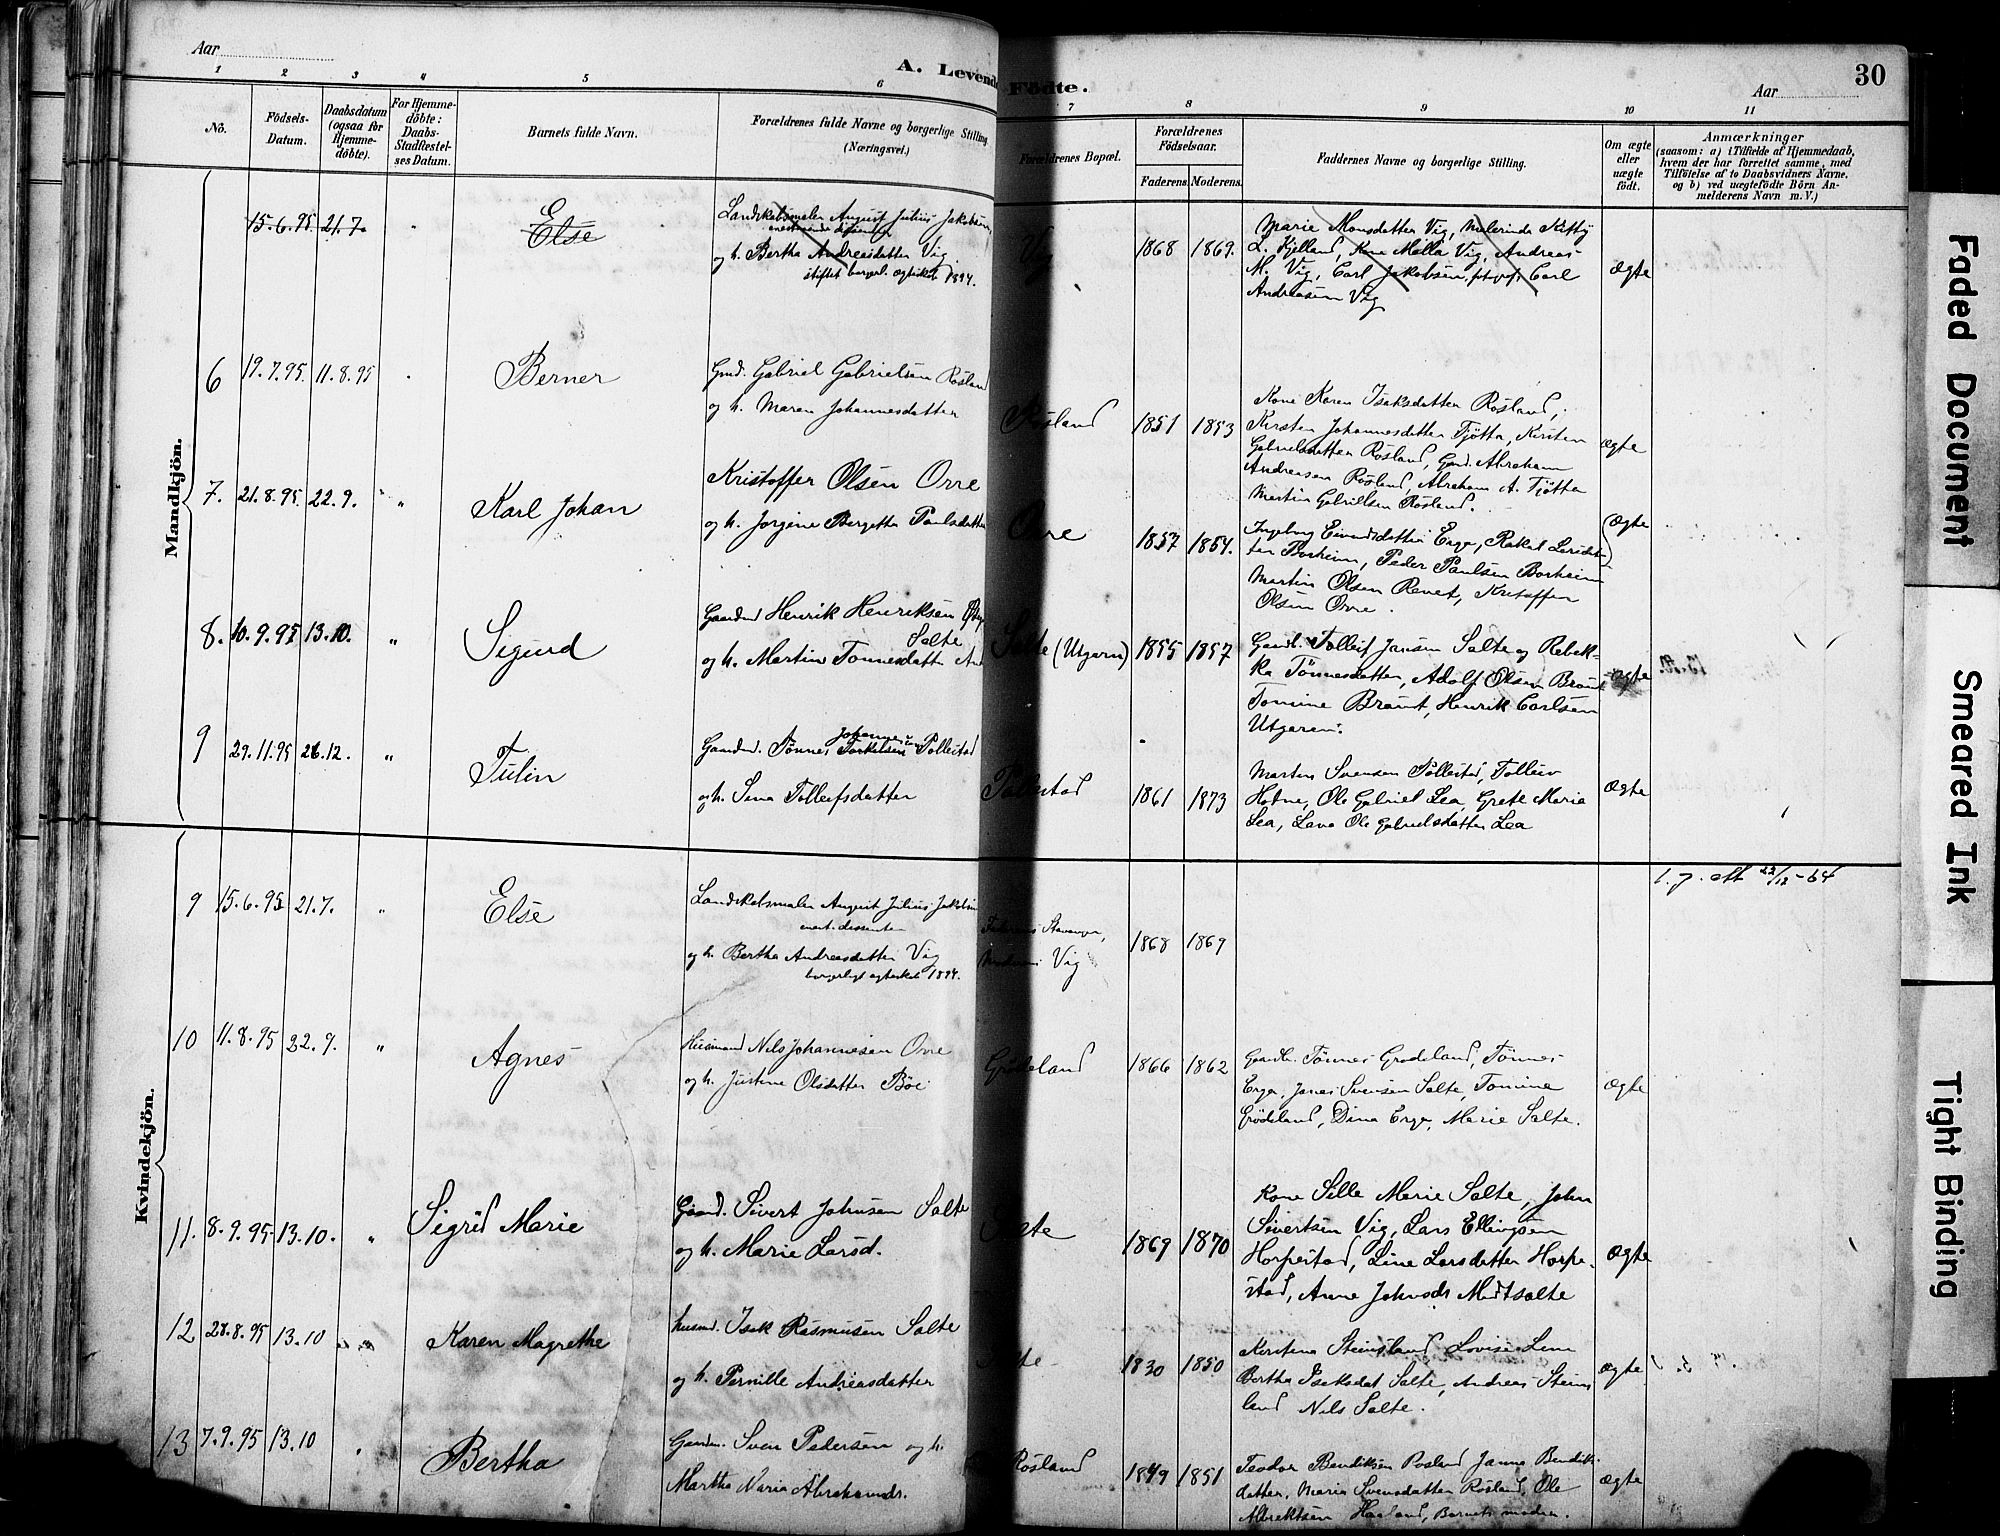 Aar
A. Levende
Födte.
Aar
30
1 2 3 4 5 6 7 8 9 10 11
No.
Födsels-
Datum.
Daabsdatum
(ogsaa for
Hjemme-
döbte).
For Hjemme-
döbte:
Daabs-
Stadfæstel-
ses Datum.
Barnets fulde Navn.
Forældrenes fulde Navne og borgerlige Stilling
(Næringsvei.)
Forældrenes Bopæl.
Forældrenes
Födselsaar.
Faderens. Moderens.
Faddernes Navne og borgerlige Stilling.
Om ægte
eller
uægte
födt.
Anmærkninger
(saasom: a) i Tilfælde af Hjemmedaab,
hvem der har forrettet samme, med
Tilföielse af to Daabsvidners Navne,
og b) ved uægtefödte Börn An-
melderens Navn m. V.)
Mandkjön.
15.6.95 21.7. Else
Landskabsmaler August Julius Jakobsen,
og h. Bertha Andreasdatter Vig
stiftet borgerl. ægteskab 1894.
Vig 1868 1869.
Marie Monsdatter Vig, Malerinde Kitty
L. Kjelland, Kone Malla Vig, Andreas
M. Vig, Carl Jakobsen, fotograf, Carl
Andreasen Vig
Ægte
6 19.7.95. 11.8.95 Berner
Gmd. Gabriel Gabrielsen Rösland
og h. Maren Johannesdatter
Rösland 1851 1853
Kone Karen Isaksdatter Rösland,
Kirsten Johannesdatter Tjötta, Kirsten
Gabrielsdatter Rösland, Gmd. Abraham
Andreasen Rösland, Abraham A. Tjötta
Martin Gabrielsen Rösland.
Ægte
7. 21.8.95 22.9. " Karl Johan
Kristoffer Olsen Orre
og h. Jorgine Bergette Paulsdatter
Orre 1857 1854.
Ingeborg Eivindsdatter Erga, Rakel Larsdat-
ter Borheim, Peder Paulsen Borheim
Martin Olsen Revet, Kristoffer
Olsen Orre.
Ægte
8. 10.9.95 13.10. " Sigurd
Gaardmd Henrik Henriksen
Salte
og h. Martine Tonnesdatter
Salte (Utgarn) 1855 1857
Gaardb. Tolleif Jansen Salte og Rebek-
ka Tönnesdatter, Adolf Olsen Braut
Tomine Braut, Henrik Carlsen
Utgaren.
Ægte
9 29.11.95 26.12. " Tulin
Gaardmd. Tönnes Torkelsen Tollestad
og h. Sina Tolleifsdatter
Tollestad 1861 1873
Martin Svensen Tollestad, Tolleiv
Hotne, Ole Gabriel Lea, Grete Marie
Lea, Lava Ole Gabrielsdatter Lea
Ægte
Kvindekjön.
9 15.6.95 21.7. " Else
Landskabsmaler August Julius Jakobsen
og h. Bertha Andreasdatter Vig
borgerligt ægteskab 1894.
Faderens Stavanger,
Moderens Vig
1868 1869
22/12-64
10 11.8.95 22.9. " Agnes
Husmand Nils Johannesen Orre
og h. Justine Olsdatter Böe
Grödeland 1866 1862
Gaardb. Tönnes Grödeland, Tönnes
Erga, Janes Svensen Salte, Tomine
Grödeland, Dina Erga, Marie Salte.
Ægte
11. 8.9.95 13.10. " Sigrid Marie
Gaard. Sivert Johnsen Salte
og h. Marie Larsd.
Salte 1869 1870
Kone Sille Marie Salte, John
Sivertsen Vig, Lars Ellingsen
Horpestad, Line Larsdatter Horpe-
stad, Anne Johnsdr Medtsalte
Ægte
12 28.8.95 13.10 Karen Magrethe
husmd. Isak Rasmusen Salte
og h. Pernille Andreasdatter
Salte 1830 1850
Kirstena Steinsland Lovise Lene
Bertha Isaksdat Salte, Andreas Steins
land Nils Salte.
Ægte
13 7.9.95 13.10 Bertha
Gaardm. Sven Pedersen og h.
Martha Maria Abrahamsdr.
Rösland 1849 1851
Teodor Bendiksen Rosland Janna Bendiks
datter, Maria Svensdatter Rösland, Ole
Albrektsen Haaland, Barnets moder.
Ægte
Faded Document
Smeared Ink
Tight Binding